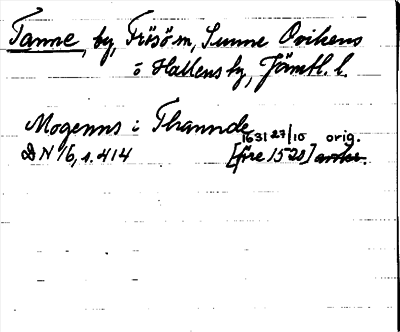 Tanne, by, Frösö sn, Sunne Ovikens
o Hallens tg, Jämtl. l.
Mogenns i Thannde
1631 27/10 orig.
DN 16, s. 414 [före 1520] avskr.